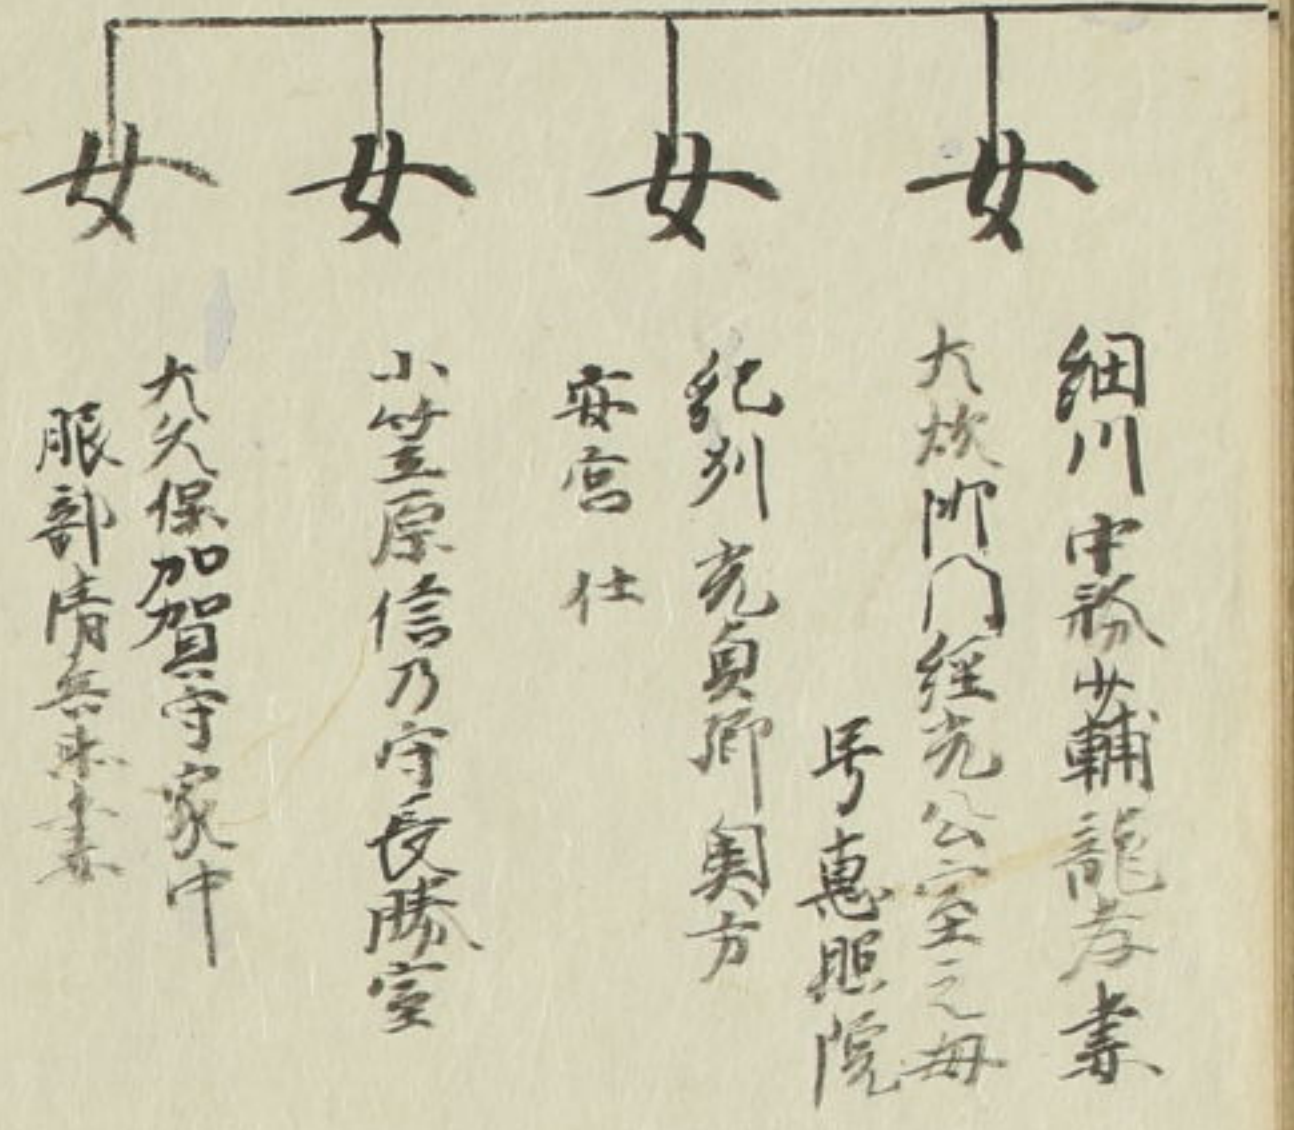 女
細川中務少輔龍孝妻
大炊御門経光公室之母
号恵照院
女
紀州光貞卿奥方
安宮仕
女
小笠原信乃守長勝室
女
大久保加賀守家中
服部清兵衛妻